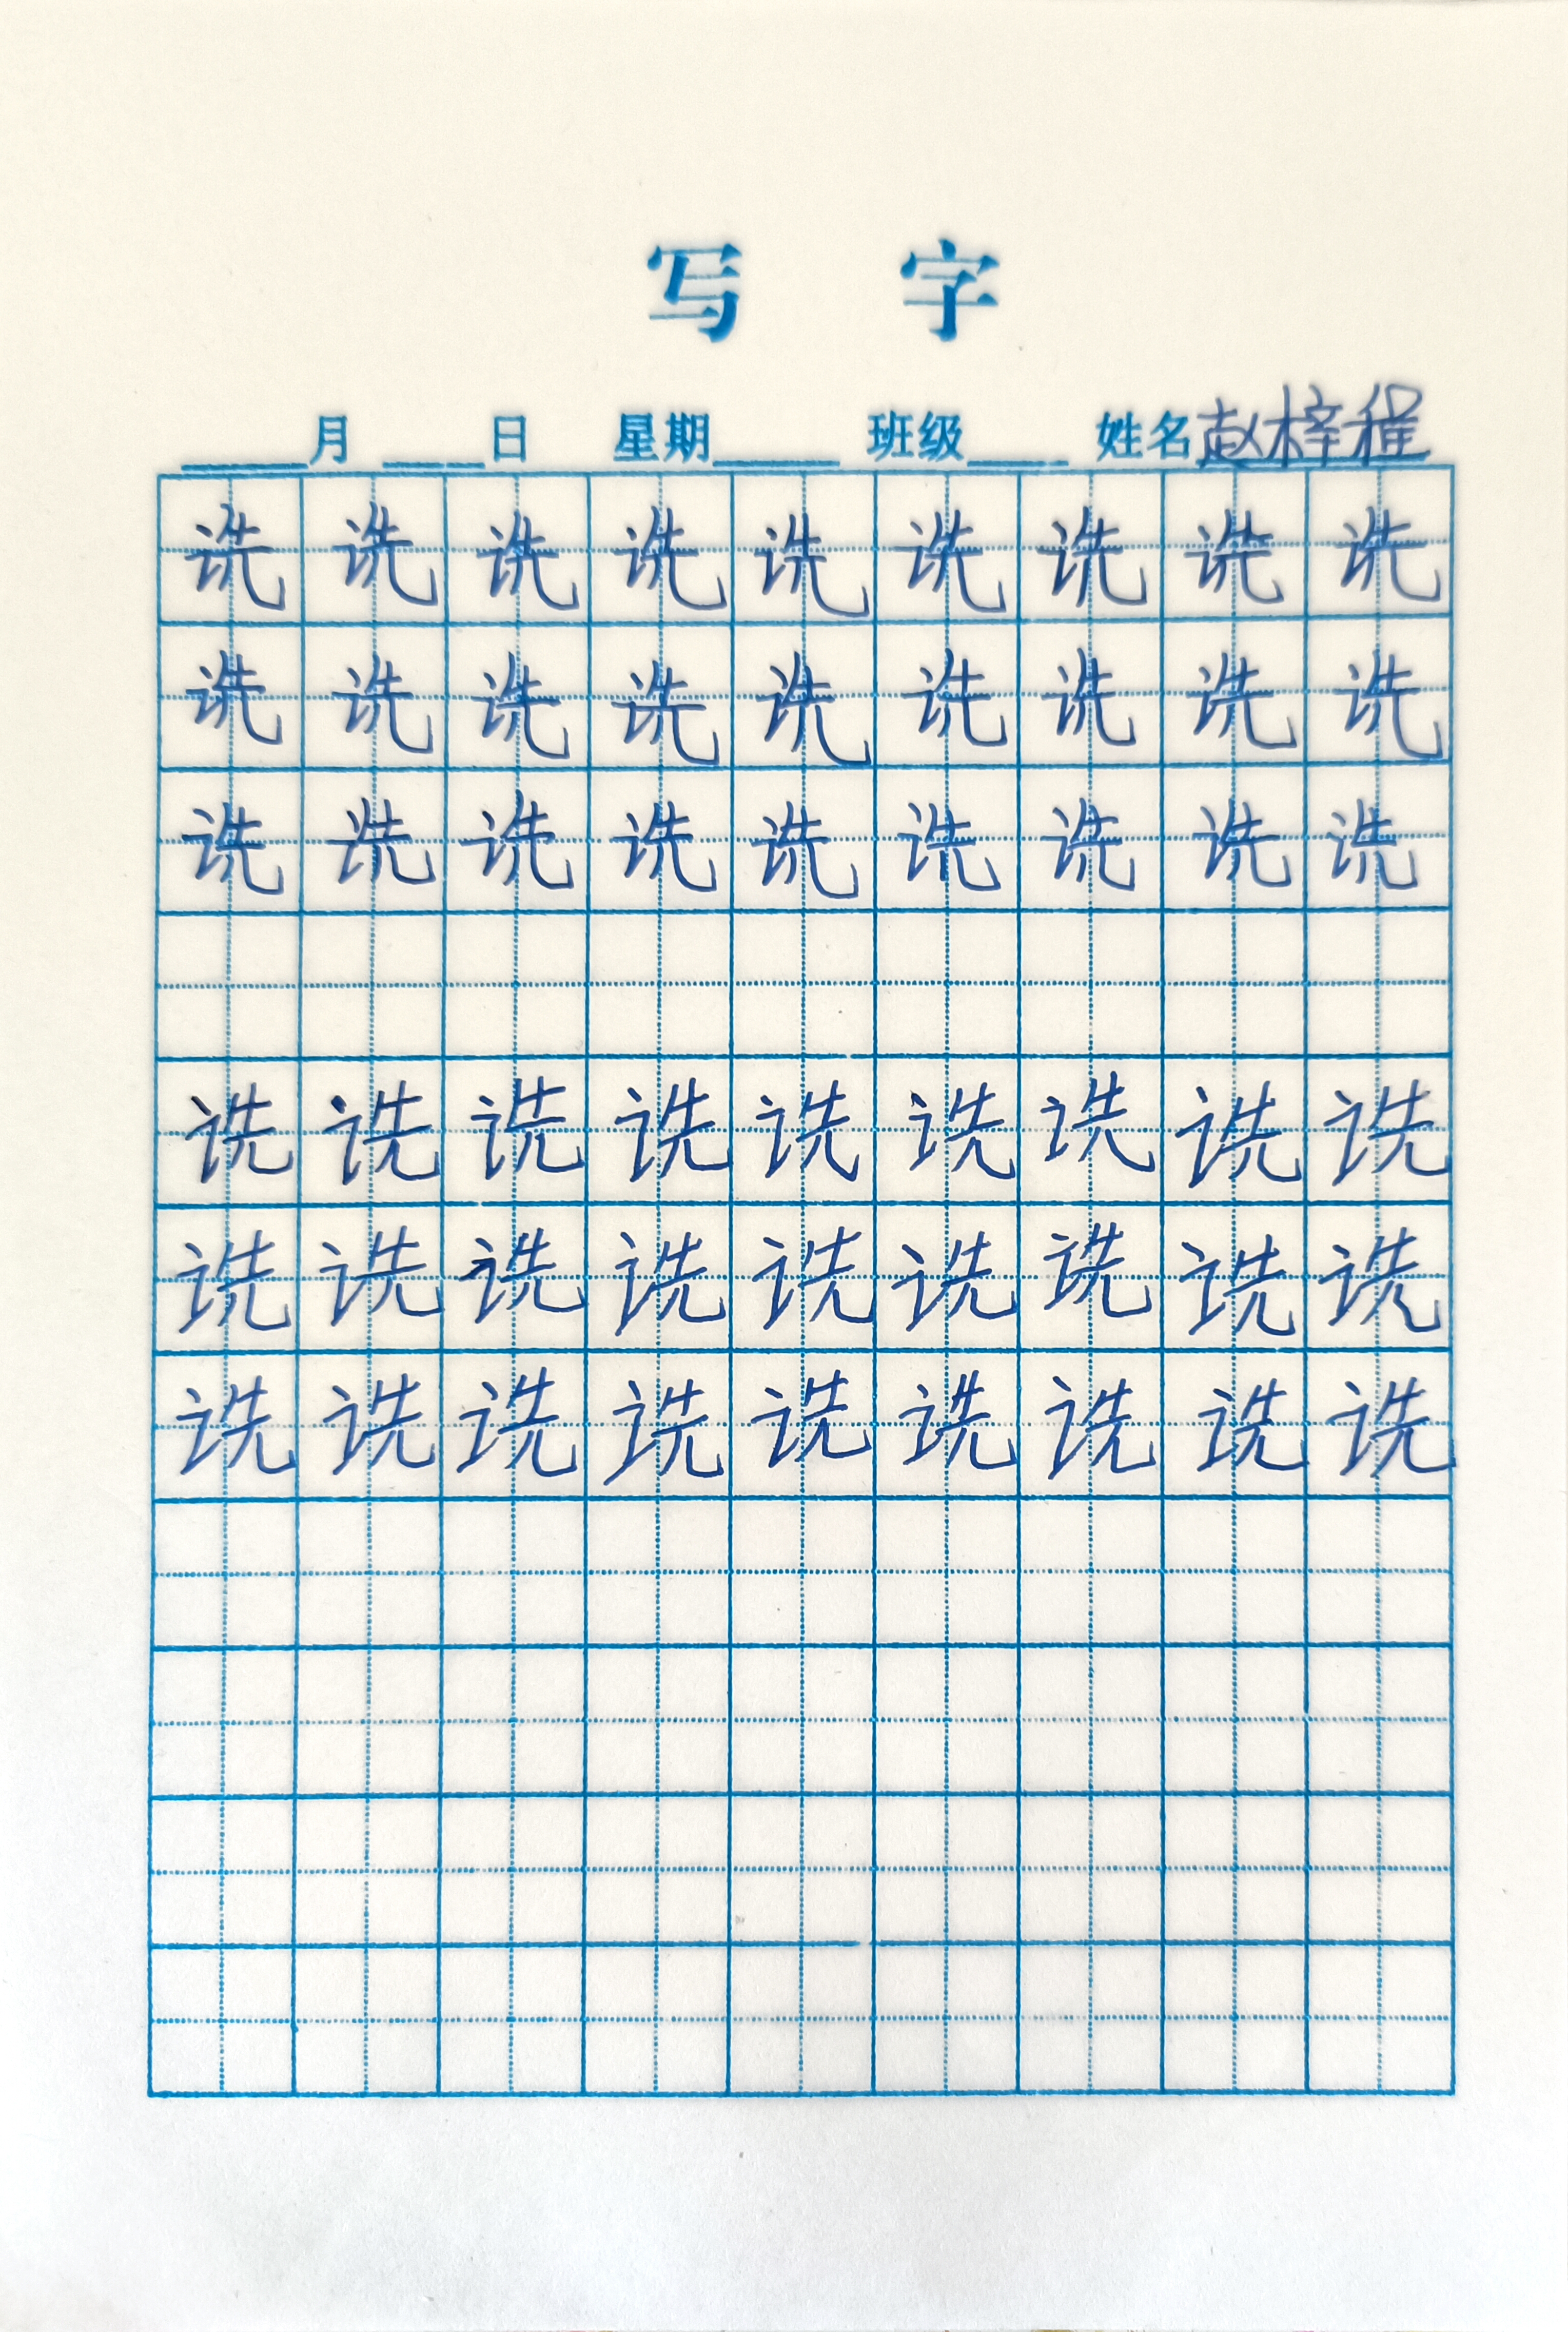 写 字
月 日 星期 班级 姓名赵梓程
诜诜诜诜诜诜诜诜诜
诜诜诜诜诜诜诜诜诜
诜诜诜诜诜诜诜诜诜
诜诜诜诜诜诜诜诜诜
诜诜诜诜诜诜诜诜诜
诜诜诜诜诜诜诜诜诜